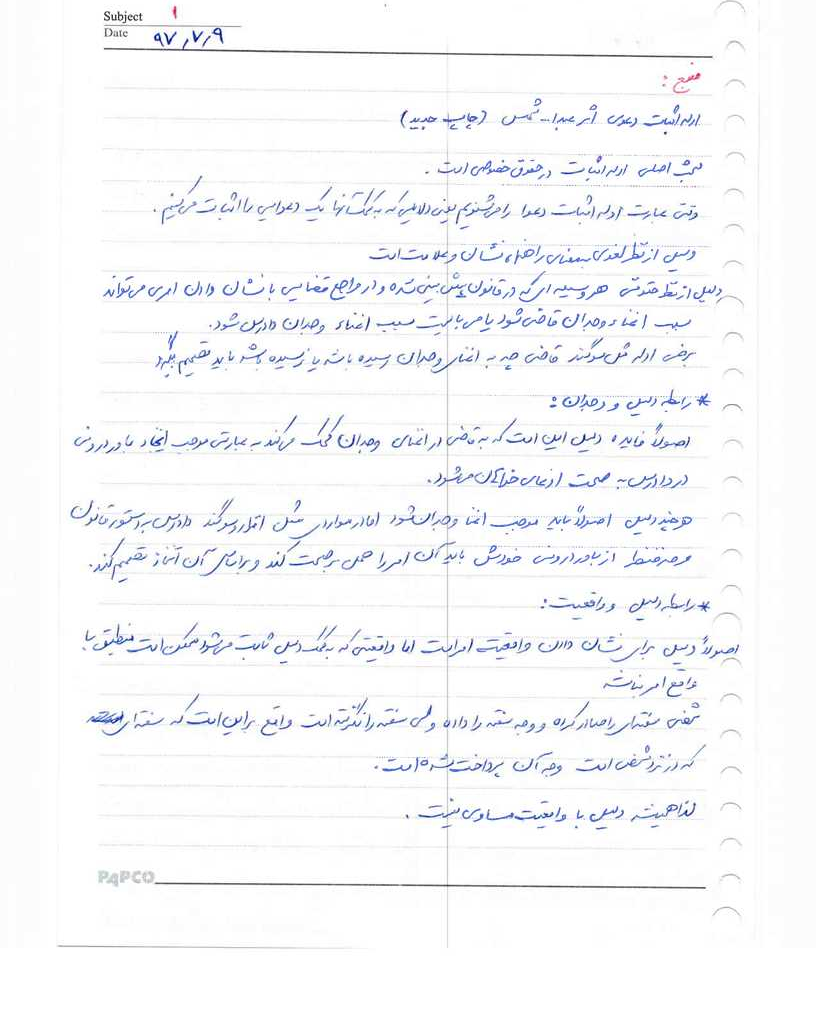 Subject ۱
Date ۹۷/۷/۹
منبع:
ادله اثبات دعوی اثر عبدا... شمس (چاپ جدید)
بحث اصلی ادله اثبات در حقوق خصوصی است.
وقتی عبارت ادله اثبات دعوا را می‌شنویم یعنی دلایلی که به کمک آنها یک دعوایی را اثبات می‌کنیم.
دلیل از نظر لغوی به معنای راهنما، نشان و علامت است
دلیل از نظر حقوقی هر وسیله ای که در قانون پیش بینی شده و در مراجع قضایی با نشان دادن امری می‌تواند
سبب اغناء وجدان قاضی شود یا می بایست سبب اغناء وجدان دادرس شود.
برخی ادله مثل سوگند قاضی چه به اغنای وجدان رسیده باشد یا نرسیده باشد باید تصمیم بگیرد
* رابطه دلیل و وجدان:
اصولاً فایده دلیل این است که به قاضی در اغنای وجدان کمک می‌کند به عبارتی موجب ایجاد باور درونی
در دادرس به صحت ادعای خواهان می‌شود.
هر چند دلیل اصولاً باید موجب اغنا وجدان شود اما در مواردی مثل اقرار و سوگند دادرس به دستور قانون
صرفنظر از باور درونی خودش باید آن امر را حمل بر صحت کند و بر اساس آن اتخاذ تصمیم کند.
* رابطه دلیل و واقعیت:
اصولاً دلیل برای نشان دادن واقعیت امر است اما واقعیتی که به کمک دلیل ثابت می‌شود ممکن است منطبق با
واقع امر نباشد
شخصی سفته‌ای را صادر کرده و وجه سفته را داده ولی سفته را نگرفته است واقع بر این است که سفته‌ای
که در نزد شخص است وجه آن پرداخت شده است.
لذا همیشه دلیل با واقعیت مساوی نیست.
PAPCO